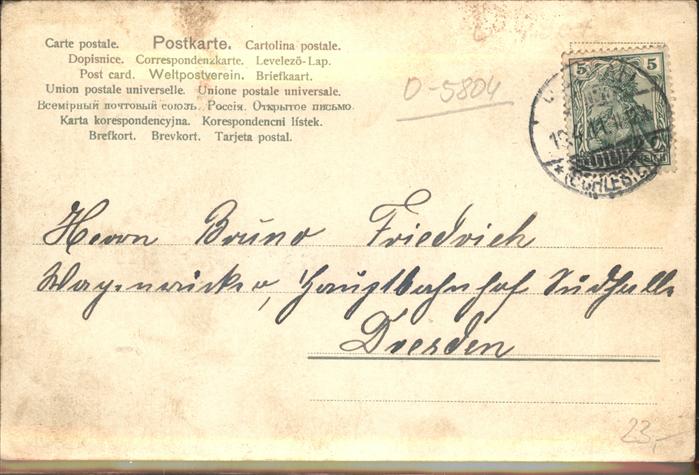 Carte postale. Postkarte. Cartolina postale.
Dopisnice. Correspondenzkarte. Levelező-Lap.
Post card. Weltpostverein. Briefkaart.
Union postale universelle. Unione postale universale.
Всемірный почтовый союзъ. Россія. Открытое письмо.
Karta korespondencyjna. Korespondencni lístek.
Brefkort. Brevkort. Tarjeta postal.
D-5804
5 5
(SCHLES.)
Herrn Bruno Friedrich
Wagenrücker, Hauptbahnhof Südhalle
Dresden
23,-